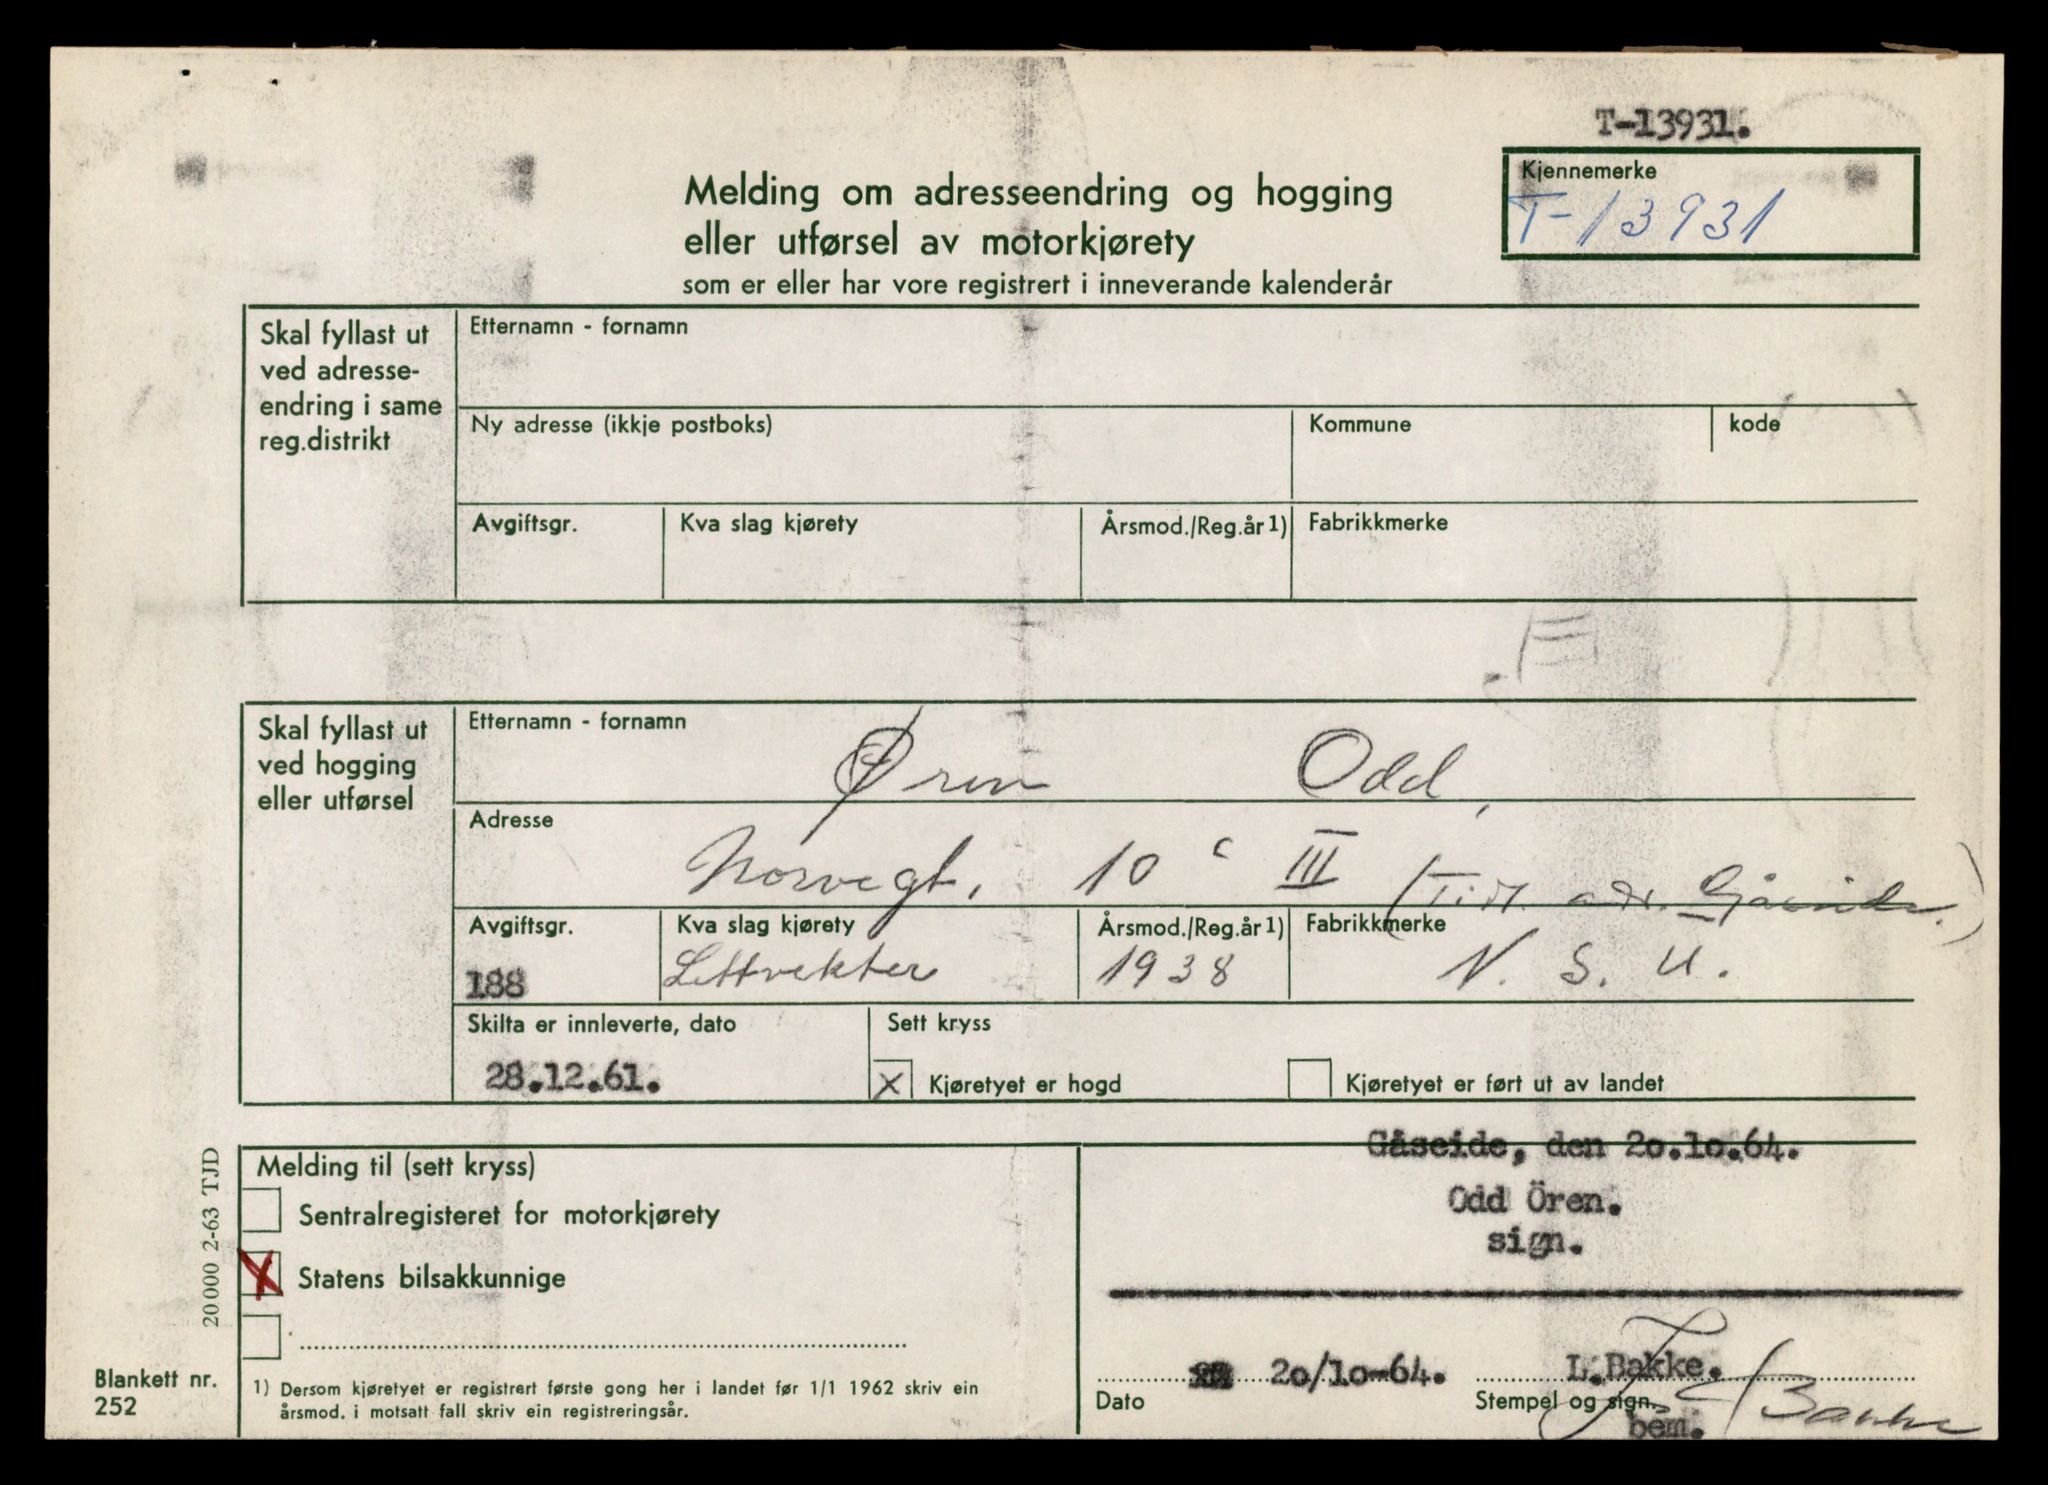 T-13931.
Kjennemerke
T-13931
Melding om adresseendring og hogging
eller utførsel av motorkjørety
som er eller har vore registrert i inneverande kalenderår
Skal fyllast ut
ved adresse-
endring i same
reg.distrikt
Etternamn - fornamn
Ny adresse (ikkje postboks) Kommune kode
Avgiftsgr. Kva slag kjørety Årsmod./Reg.år 1) Fabrikkmerke
Skal fyllast ut
ved hogging
eller utførsel
Etternamn - fornamn
Øren Odd,
Adresse
Norvegt. 10 c III (Tidl. adr. Gåseide.)
Avgiftsgr. Kva slag kjørety Årsmod./Reg.år 1) Fabrikkmerke
188 Lettvekter 1938 N. S. U.
Skilta er innleverte, dato Sett kryss
28.12.61. x Kjøretyet er hogd Kjøretyet er ført ut av landet
Melding til (sett kryss)
Sentralregisteret for motorkjørety
X Statens bilsakkunnige
Gåseide, den 20.10.64.
Odd Ören.
sign.
20/10-64. L.Bakke.
Dato Stempel og sign.
bem.
L Bakke
1) Dersom kjøretyet er registrert første gong her i landet før 1/1 1962 skriv ein
årsmod. i motsatt fall skriv ein registreringsår.
Blankett nr.
252
20 000 2-63 TJD